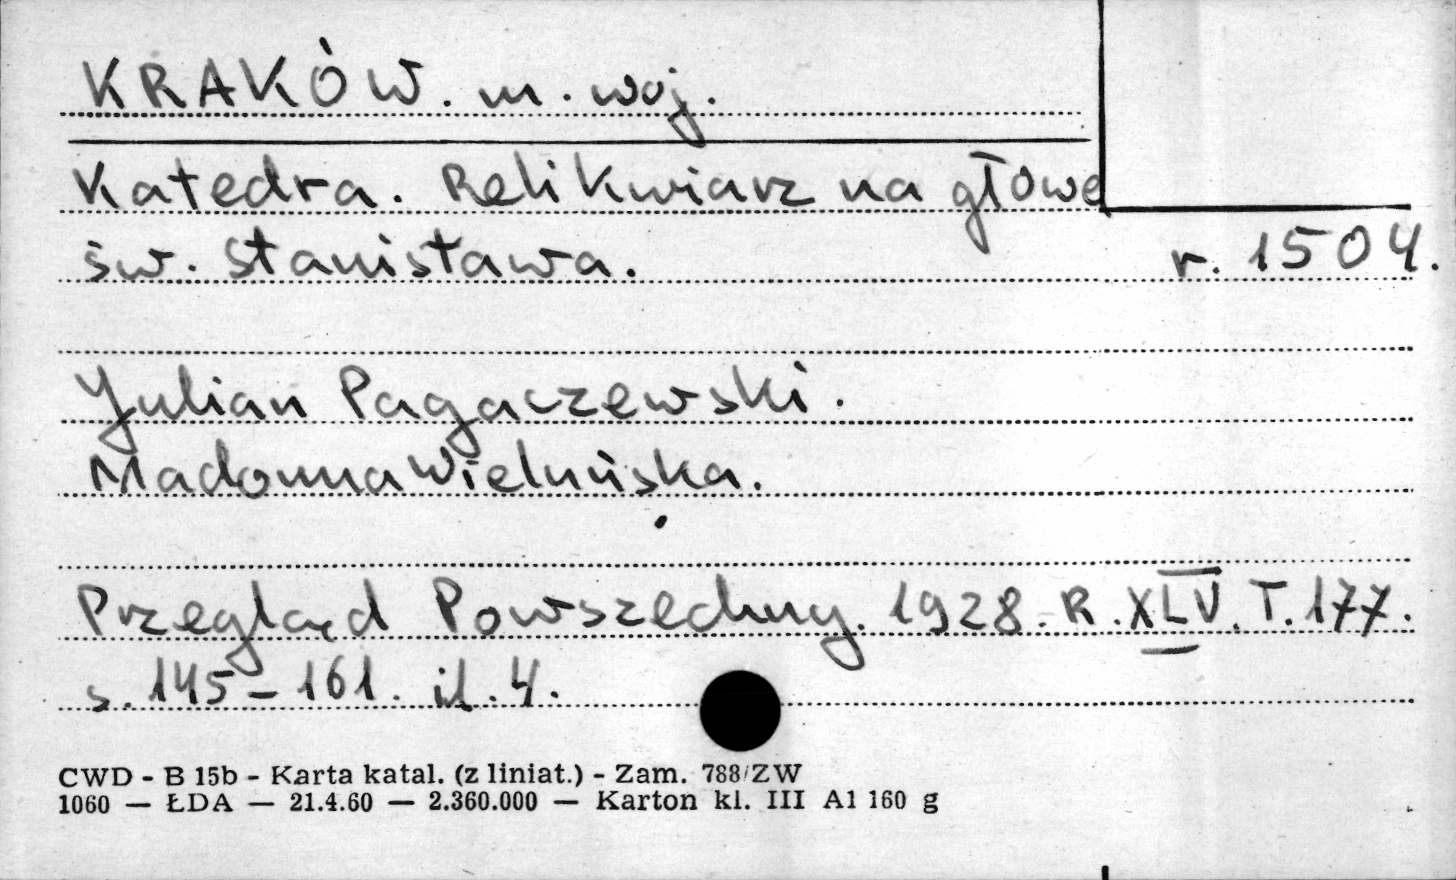 KRAKÓW. m. woj.
Katedra. Relikwiarz na głowę
św. Stanisława.
r. 1504.
Julian Pagaczewski.
Madonna Wieluńska.
Przegląd Powszechny. 1928. R. XLV. T. 177.
s. 145-161. il. 4.
CWD - B 15b - Karta katal. (z liniat.) - Zam. 788/ZW
1060 — ŁDA — 21.4.60 — 2.360.000 — Karton kl. III A1 160 g